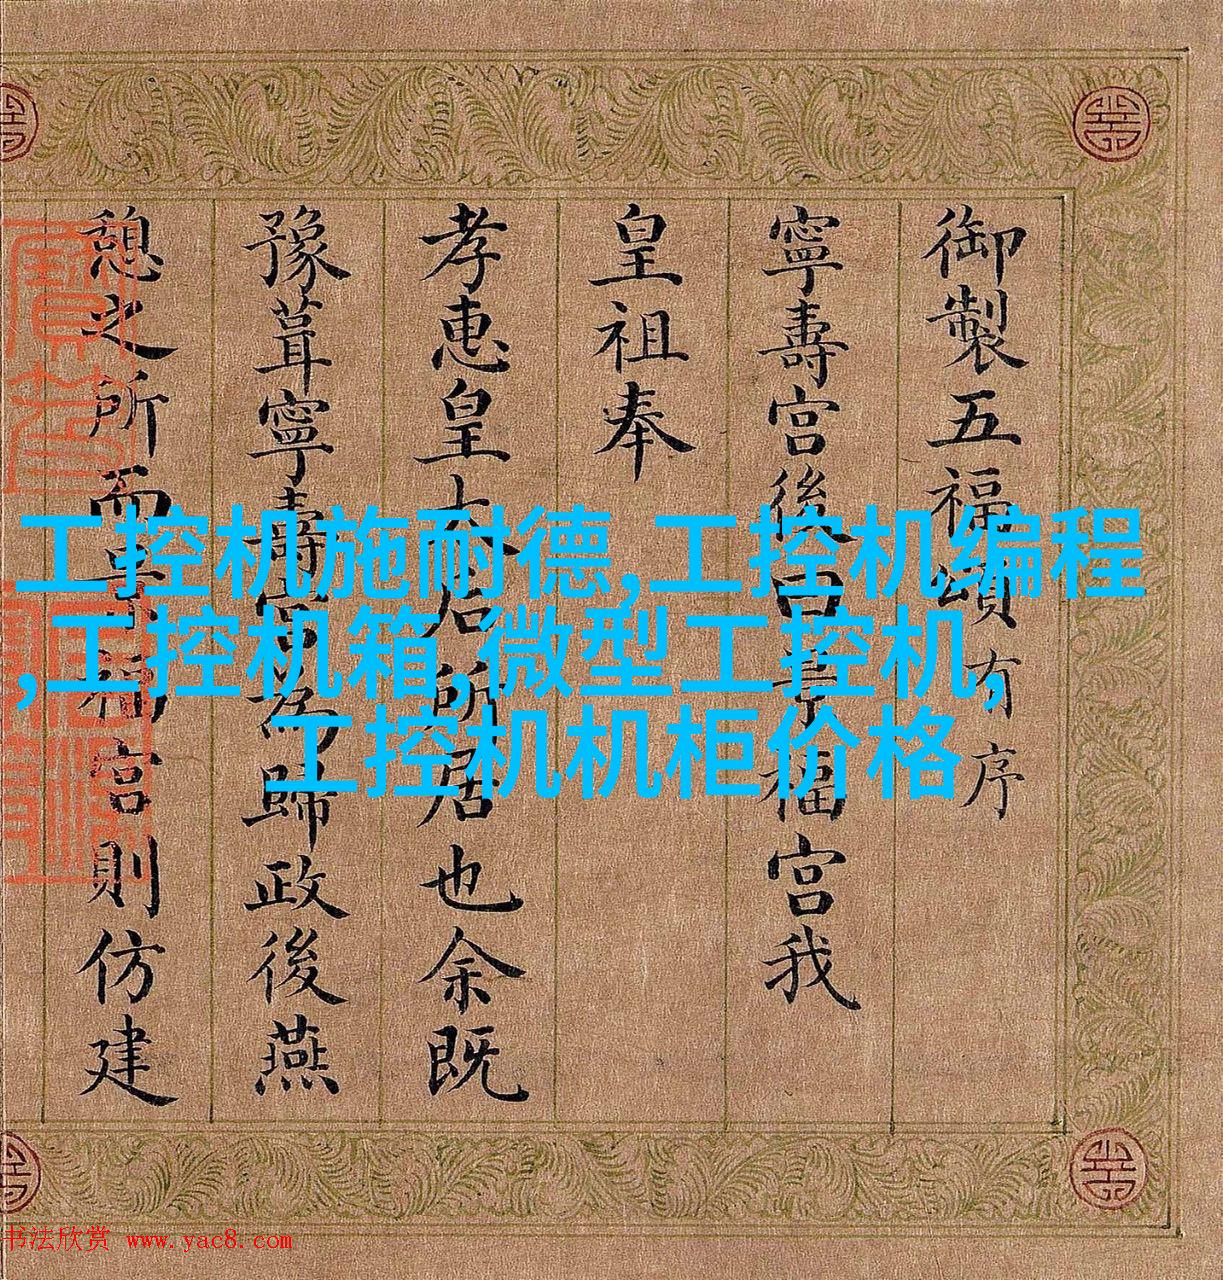 御製五福頌有序
寧壽宮後曰景福宮我
皇祖奉
孝惠皇太后所居也余既
豫葺寧壽宮為歸政後燕
憩之所而景福宮則仿建
工控机施耐德,工控机编程
,工控机箱,微型工控机,
工控机机柜价格
书法欣赏 www.yac8.com